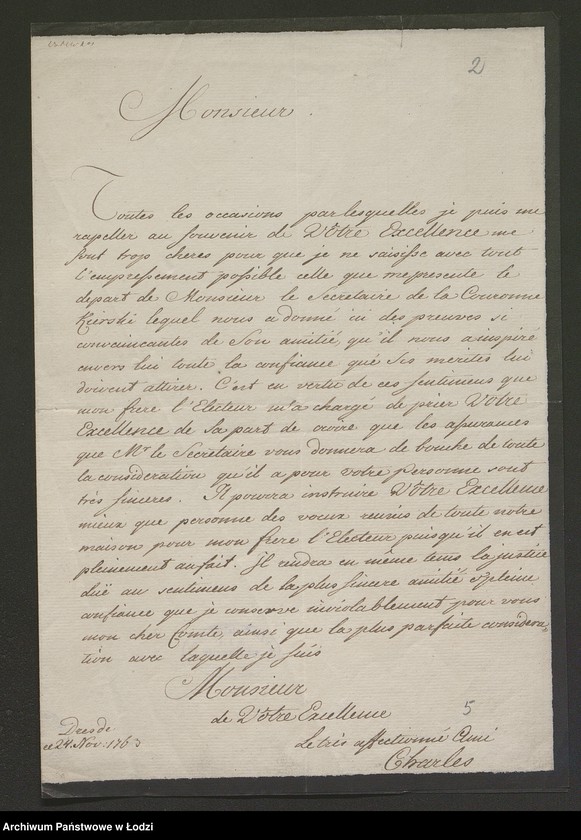 2
Monsieur.
Toutes les occasions parlesquelles je puis me
rapeller au souvenir de Vôtre Excellence me
sont trop cheres pour que je ne saisisse avec tout
l'empressement possible celle que me presente le
depart de Monsieur le Secretaire de la Couronne
lequel nous a donné ici des preuves si
convaincantes de Son amitié, qu'il nous a inspiré
envers lui toute la confiance que Ses merites lui
doivent attirer. C'est en vertu de ces sentimens que
mon frere l'Electeur m'a chargé de prier Vôtre
Excellence de sa part de croire que les assurances
que Mr le Secretaire vous donnera de bouche de toute
la consideration qu'il a pour votre personne sont
très sinceres. Il pourra instruire Vôtre Excellence
mieux que personne des voeux reunis de toute notre
maison pour mon frere l'Electeur puisqu'il en est
pleinement au fait. Il rendra en même tems la justice
düe au sentimens de la plus sincere amitié & pleine
confiance que je conserve inviolablement pour vous
mon cher Comte, ainsi que la plus parfaite considera-
tion avec laquelle je suis
Monsieur
de Vôtre Excellence
5
Dresde
ce 24. Nov. 1763
Le très affectionné Ami
Charles
Archiwum Państwowe w Łodzi